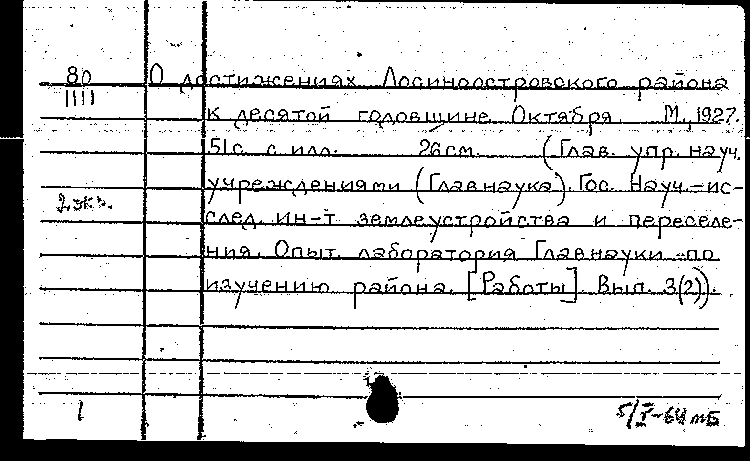 80 О достижениях Лосиноостровского района
1111 к десятой годовщине Октября. М., 1927.
51с. с илл. 26см. (Глав. упр. науч.
учреждениями (Главнаука). Гос. Науч.-ис-
2 экз. след. ин-т землеустройства и переселе-
ния. Опыт. лаборатория Главнауки по
изучению района. [Работы]. Вып. 3(2)).
1 5/I-64 тБ